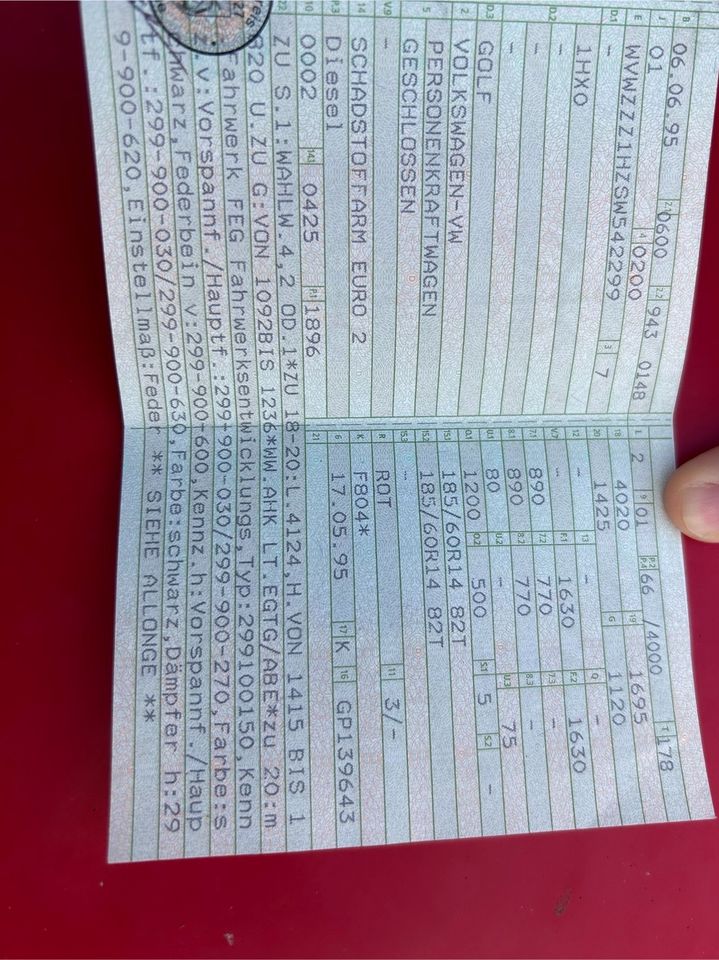 B 06.06.95 2.1 0600 2.2 943 0148
J 01 4 0200
E WVWZZZ1HZSW542299 3 7
D.1 -
1HX0
D.2 -
-
D.3 GOLF
2 VOLKSWAGEN-VW
5 PERSONENKRAFTWAGEN
GESCHLOSSEN
V.9 -
14 SCHADSTOFFARM EURO 2
P.3 Diesel
10 0002 14.1 0425 P.1 1896
L 2 9 01 P.2 P.4 66 /4000 T 178
18 4020 19 1695
20 1425 G 1120
12 - 13 - Q -
V.7 - F.1 1630 F.2 1630
7.1 890 7.2 770 7.3 -
8.1 890 8.2 770 8.3 -
U.1 80 U.2 - U.3 75
O.1 1200 O.2 500 S.1 5 S.2 -
15.1 185/60R14 82T
15.2 185/60R14 82T
15.3 -
R ROT 11 3/-
K F804*
6 17.05.95 17 K 16 GP139643
21
22 ZU S.1:WAHLW.4,2 OD.1*ZU 18-20:L.4124,H.VON 1415 BIS 1
820 U.ZU G:VON 1092BIS 1236*WW.AHK LT.EGTG/ABE*zu 20:m
Fahrwerk FEG Fahrwerksentwicklungs,Typ:299100150,Kenn
.v:Vorspannf./Hauptf.:299-900-030/299-900-270,Farbe:s
hwarz,Federbein v:299-900-600,Kennz.h:Vorspannf./Haup
tf.:299-900-030/299-900-630,Farbe:schwarz,Dämpfer h:29
9-900-620,Einstellmaß:Feder ** SIEHE ALLONGE **